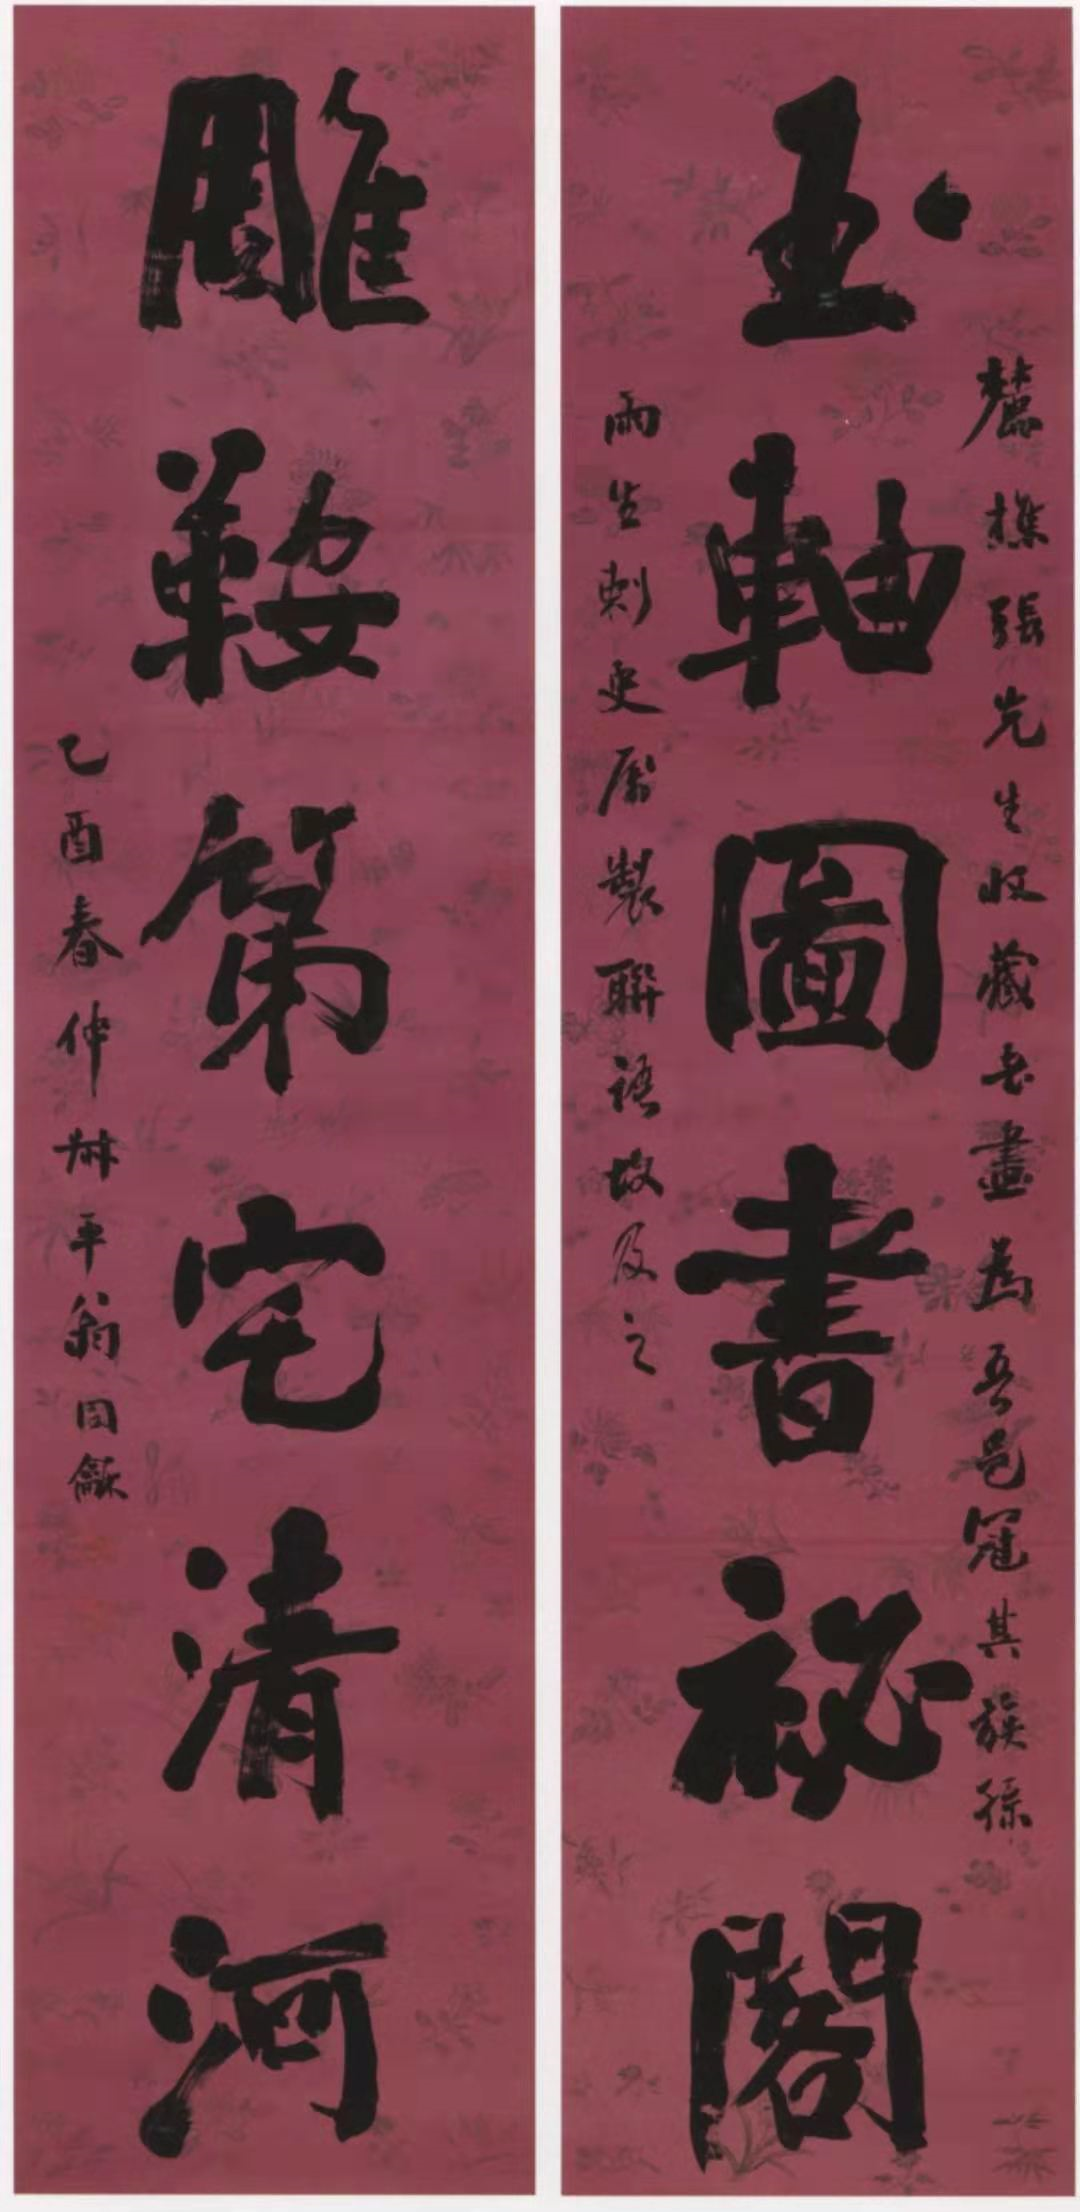 麓樵張先生收藏書畫爲吾邑冠其族孫
玉軸圖書祕閣
雨生刺史屬製聯語故及之
雕鞍第宅清河
乙酉春仲尗平翁同龢